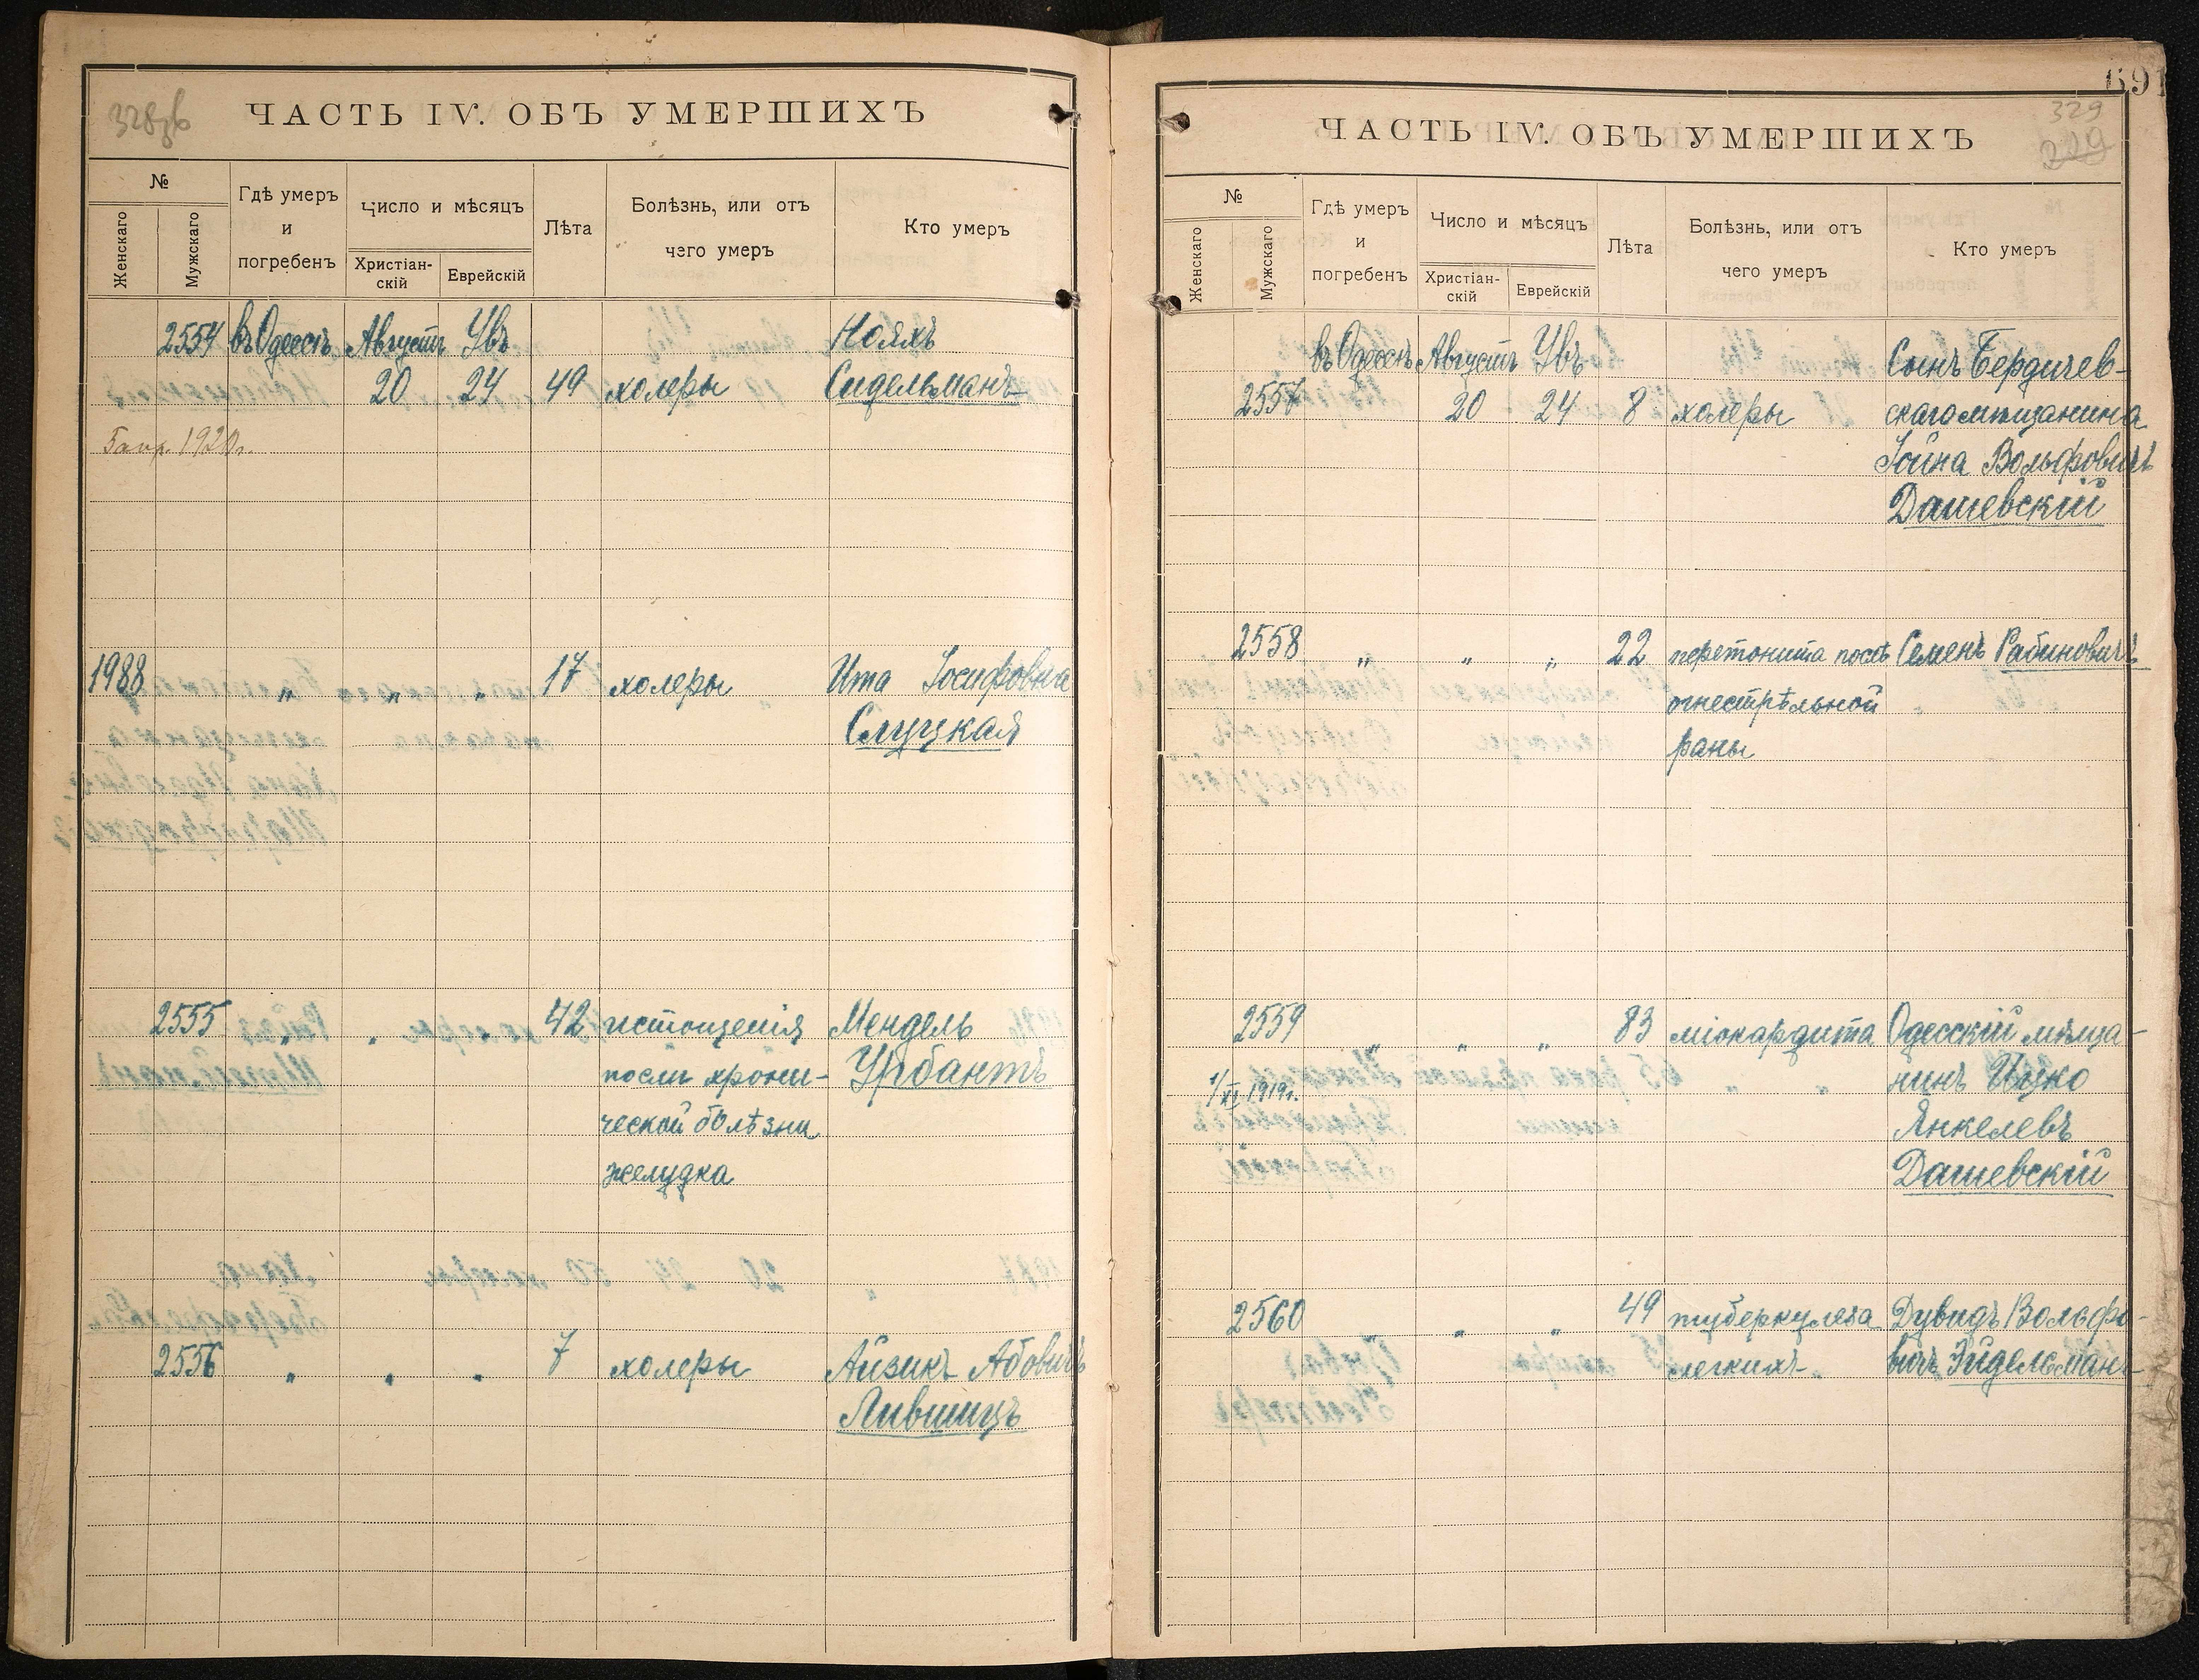 328об
ЧАСТЬ IV. ОБЪ УМЕРШИХЪ
№
Женскаго
Мужскаго
Гдѣ умеръ
и
погребенъ
Число и мѣсяцъ
Христіан-
скій
Еврейскій
Лѣта
Болѣзнь, или отъ
чего умеръ
Кто умеръ
2554 въ Одессѣ Августъ Увъ Нояхъ
20 24 49 холеры Сидельманъ
5 апр. 1920 г.
1988 " " " 17 холеры Ита Іосифовна
Слуцкая
2555 " " " 42 истощенія Мендель
послѣ хрони- Урбантъ
ческой болѣзни
желудка
2556 " " " 7 холеры Айзикъ Абовичъ
Лившицъ
691
329
329
ЧАСТЬ IV. ОБЪ УМЕРШИХЪ
№
Женскаго
Мужскаго
Гдѣ умеръ
и
погребенъ
Число и мѣсяцъ
Христіан-
скій
Еврейскій
Лѣта
Болѣзнь, или отъ
чего умеръ
Кто умеръ
въ Одессѣ Августъ Увъ Сынъ Бердичев-
2557 20 24 8 холеры скаго мѣщанина
Іойна Вольфовичъ
Дашевскій
2558 " " " 22 перетонита послѣ Семенъ Рабиновичъ
огнестрѣльной
раны
2559 " " " 83 міокардита Одесскій мѣща-
1/XI 1919 г. нинъ Ицко
Янкелевъ
Дашевскій
2560 " " " 49 туберкулеза Дувидъ Вольфо-
легкихъ вичъ Эйдельманъ